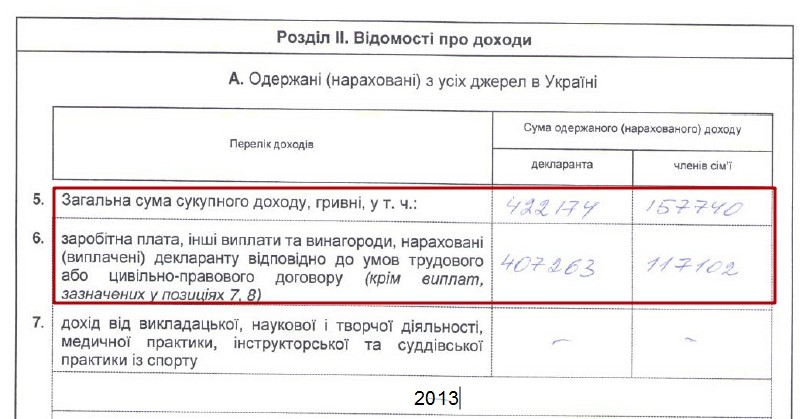 Розділ II. Відомості про доходи
А. Одержані (нараховані) з усіх джерел в Україні
Перелік доходів
Сума одержаного (нарахованого) доходу
декларанта
членів сім'ї
5. Загальна сума сукупного доходу, гривні, у т. ч.: 422174 157740
6. заробітна плата, інші виплати та винагороди, нараховані
(виплачені) декларанту відповідно до умов трудового
або цивільно-правового договору (крім виплат, 407263 117102
зазначених у позиціях 7, 8)
7. дохід від викладацької, наукової і творчої діяльності,
медичної практики, інструкторської та суддівської - -
практики із спорту
2013